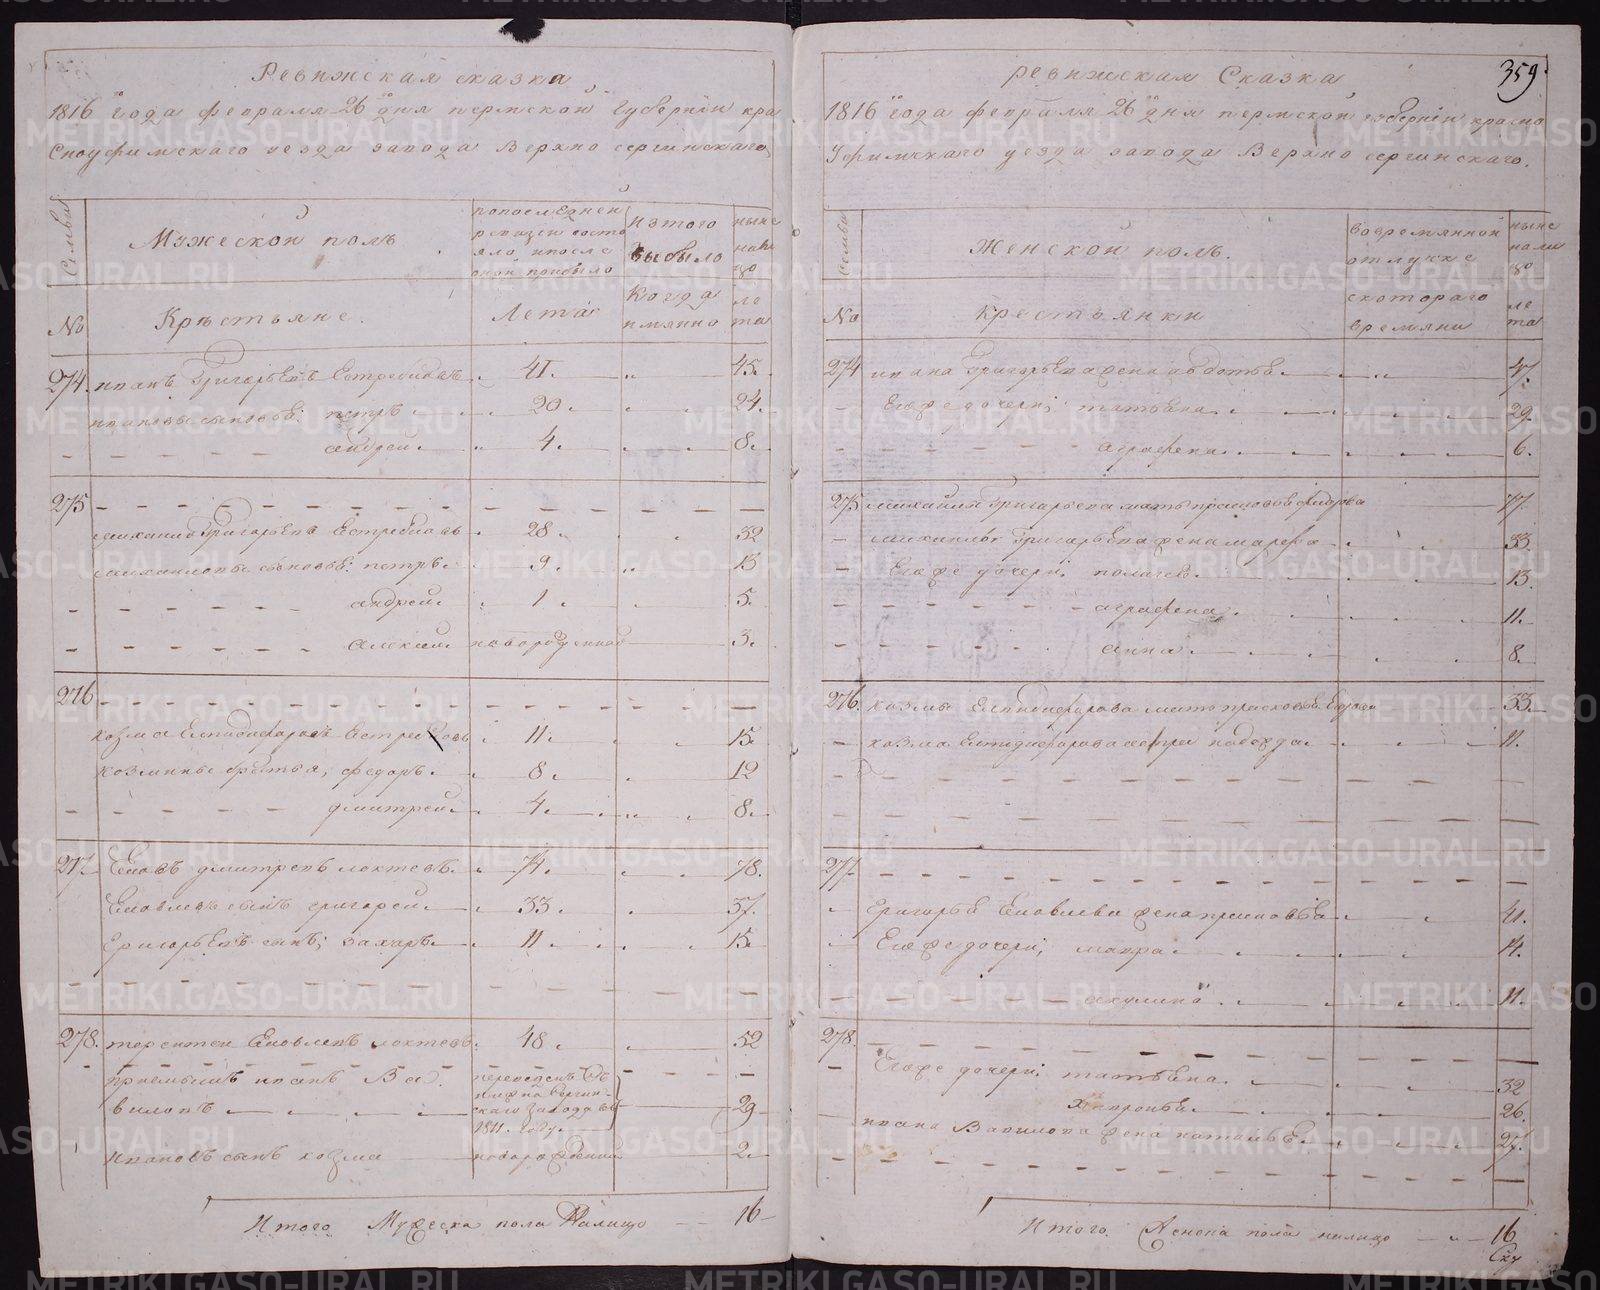 Ревижская сказка
1816 года февраля 26 дня пермской губернiи кра
сноуфимскаго уезда завода Верхно сергинскаго
Семьи
Мужеской полъ
попоследней ревизiи состояло ипосле оной прибыло
изтого выбыло
ныне налицо
№
Крѣстьяне.
Лета
Когда имянно
лета
274. иванъ Григорьевъ Ястребовъ 41. 45.
ивановы сыновья: петръ 20. 24.
андрей 4. 8.
275
михаила Григорьевъ Ястребовъ 28 32
михаиловы сыновья: петръ 9. 13
андрей 1. 5.
алексей новорожденной 3.
276
козма Елпидифоровъ Ястребовъ 11. 15
козмины братья, федоръ 8. 12
дмитрей 4. 8.
277. Яковъ дмитревъ локтевъ 74. 78.
Яковлевъ сынъ григорей 33. 37.
Григорьевъ сынъ; захаръ 11. 15.
278. терентей Яковлевъ локтевъ 48. 52
приемышъ иванъ Ва
виловъ 29
1811. году
Ивановъ сынъ козма новорожденной 2.
Итого Мужеска пола Налицо 16
359.
ревижская Сказка
1816 года февраля 26 дня пермской губернiи красно
уфимскаго уезда завода Верхно сергинскаго.
Семьи
Женской полъ.
вовремянной отлучке
ныне налицо
№
Крестьянки
скотораго времяни
лета
274 ивана Григорьева жена авдотья 47.
Егоже дочери; татьяна 29.
аграфена 6.
275 михаила Григорьева мать прасковья 77.
михаилы Григорьева жена марфа 33
Егоже дочери; 13.
аграфена 11.
анна 8.
276. козмы Елпидифорова мать прасковья 33.
козма Елпидифорова сестра надежда 11.
277.
Григорья Яковлева жена прасковья 41.
Егоже дочери; мавра 14.
акулина 11.
278.
Егоже дочери; татьяна 32
26.
ивана Вавилова жена наталья 27.
Итого Женска пола налицо 16